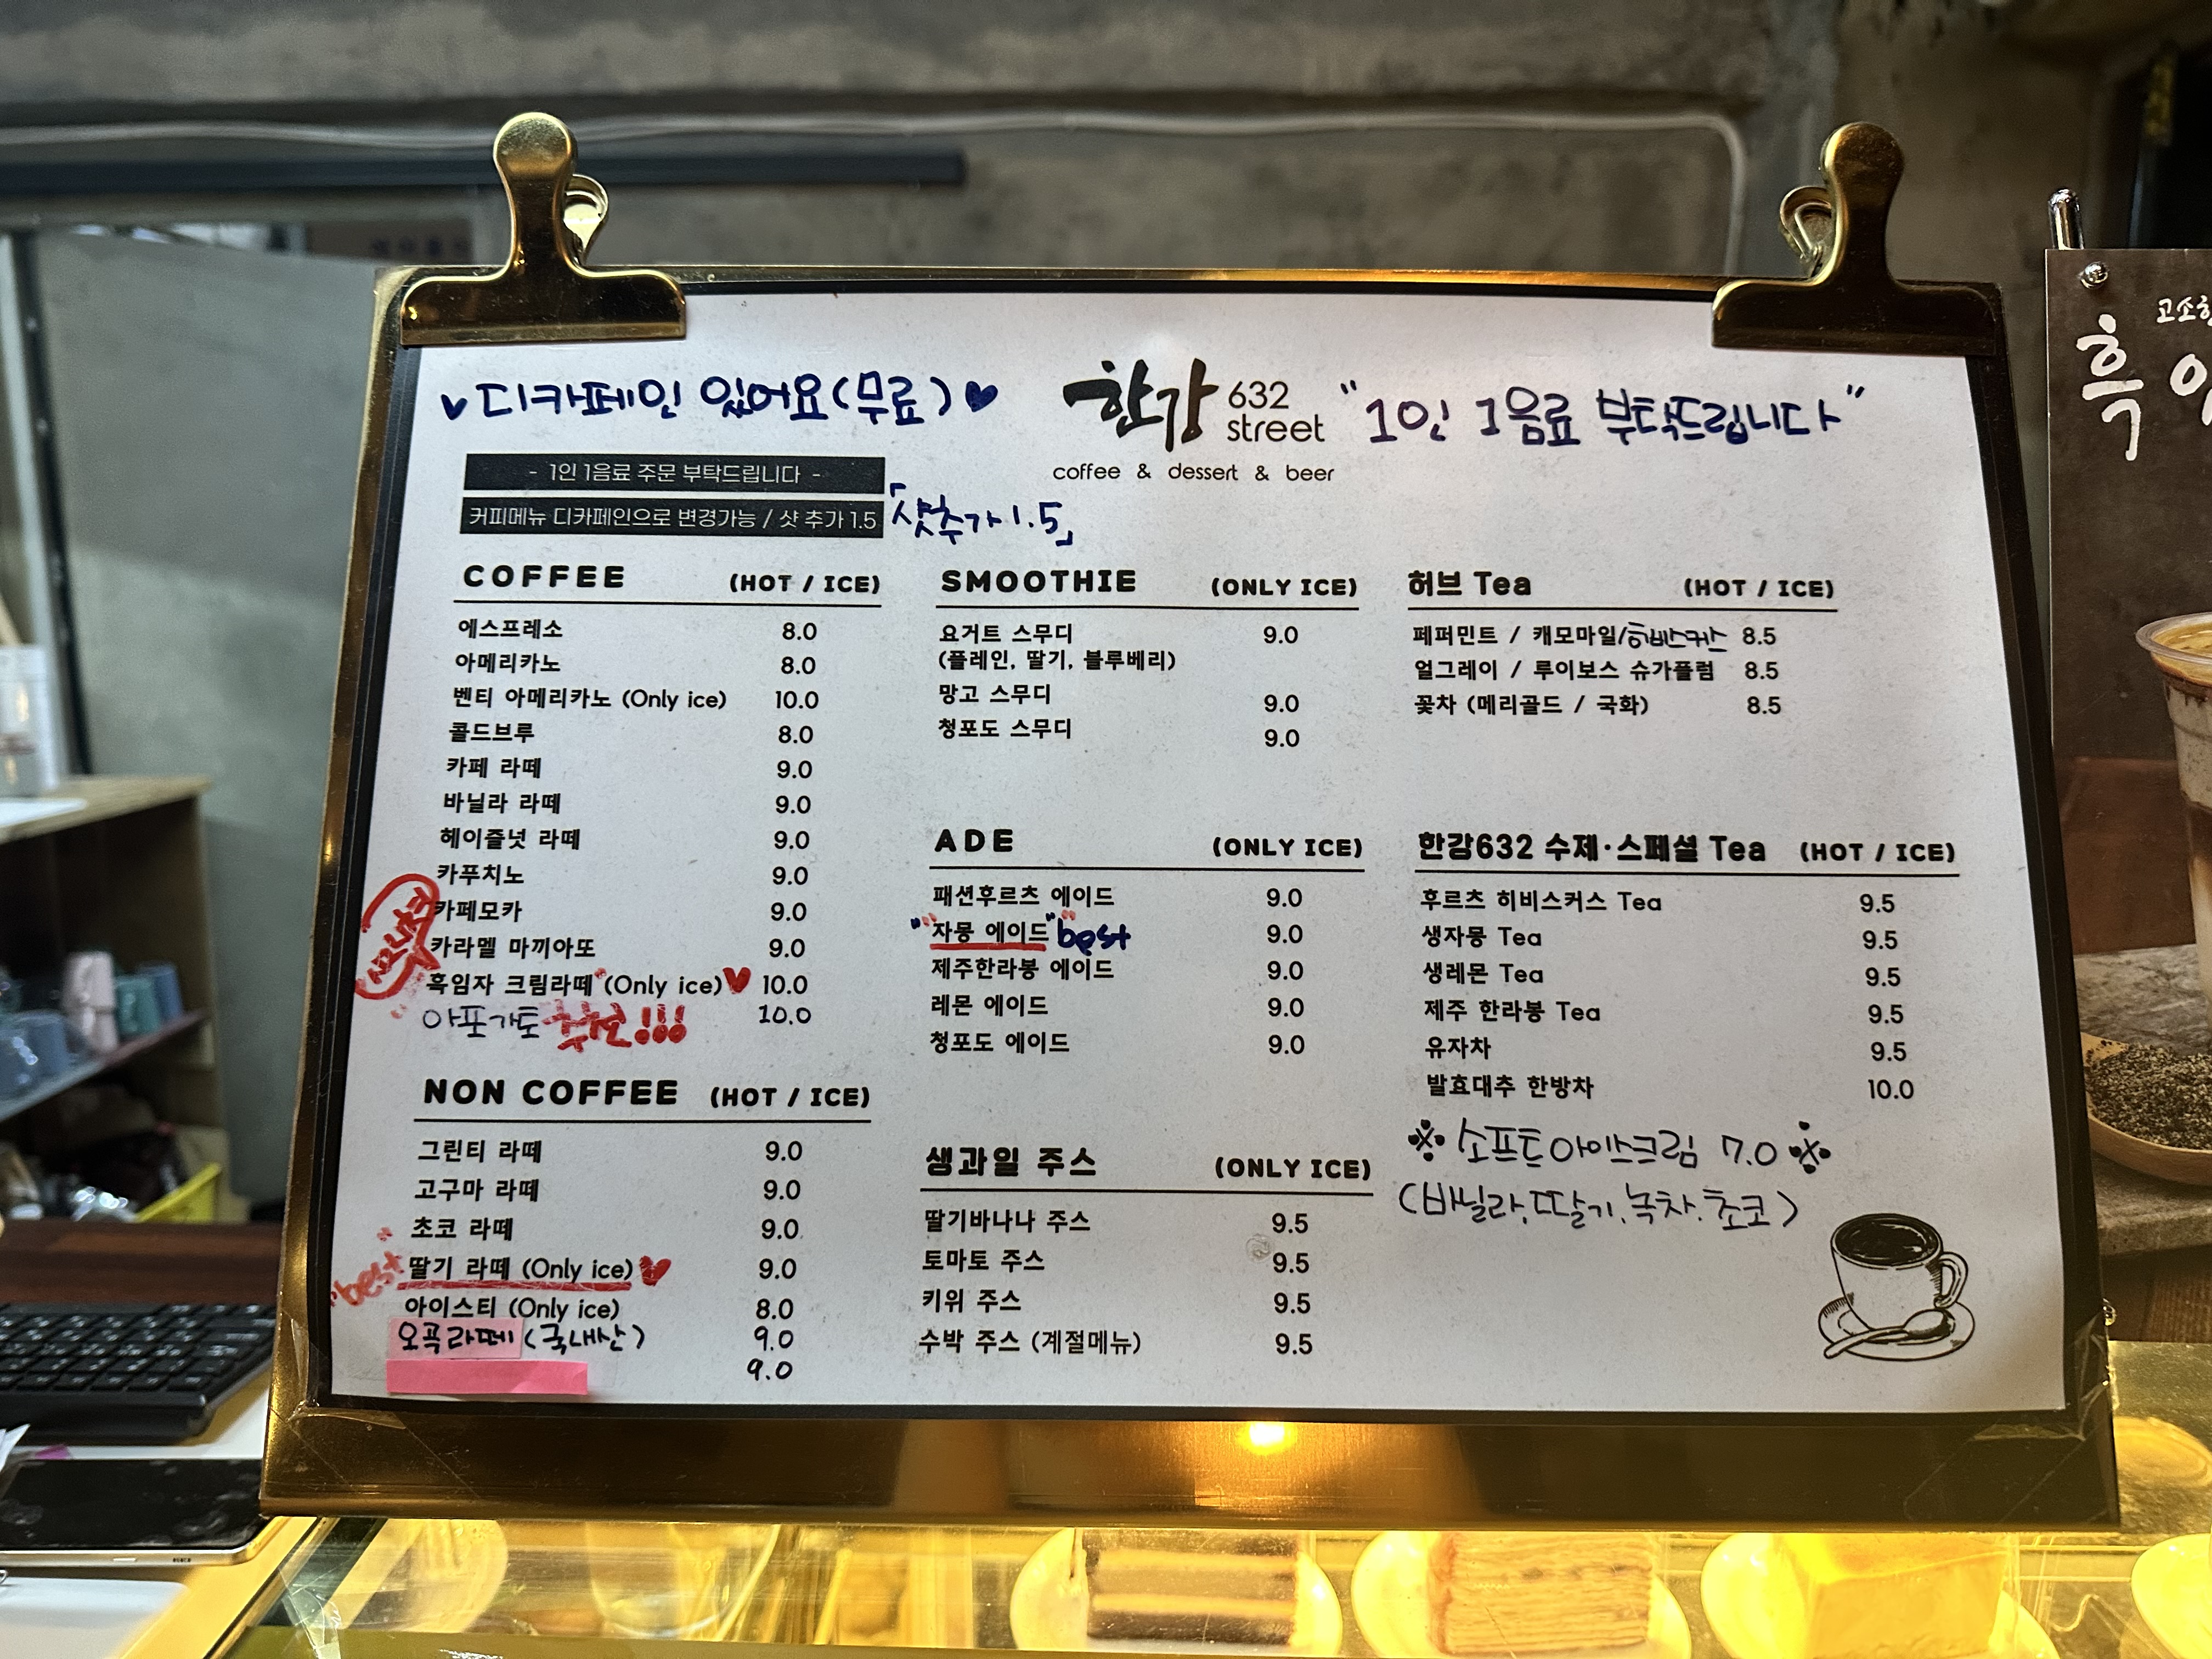 ♥디카페인 있어요(무료)♥
한강 632 street
coffee & dessert & beer
"1인 1음료 부탁드립니다"
- 1인 1음료 주문 부탁드립니다 -
커피메뉴 디카페인으로 변경가능 / 샷 추가 1.5
「샷추가 1.5」
COFFEE (HOT / ICE)
에스프레소 8.0
아메리카노 8.0
벤티 아메리카노 (Only ice) 10.0
콜드브루 8.0
카페 라떼 9.0
바닐라 라떼 9.0
헤이즐넛 라떼 9.0
카푸치노 9.0
카페모카 9.0
카라멜 마끼아또 9.0
흑임자 크림라떼 (Only ice) ♥ 10.0
아포가토 추천!!! 10.0
NON COFFEE (HOT / ICE)
그린티 라떼 9.0
고구마 라떼 9.0
초코 라떼 9.0
"best" 딸기 라떼 (Only ice) ♥ 9.0
아이스티 (Only ice) 8.0
오곡라떼 (국내산) 9.0
9.0
SMOOTHIE (ONLY ICE)
요거트 스무디 9.0
(플레인, 딸기, 블루베리)
망고 스무디 9.0
청포도 스무디 9.0
ADE (ONLY ICE)
패션후르츠 에이드 9.0
"자몽 에이드" best 9.0
제주한라봉 에이드 9.0
레몬 에이드 9.0
청포도 에이드 9.0
생과일 주스 (ONLY ICE)
딸기바나나 주스 9.5
토마토 주스 9.5
키위 주스 9.5
수박 주스 (계절메뉴) 9.5
허브 Tea (HOT / ICE)
페퍼민트 / 캐모마일/히비스커스 8.5
얼그레이 / 루이보스 슈가플럼 8.5
꽃차 (메리골드 / 국화) 8.5
한강632 수제·스페셜 Tea (HOT / ICE)
후르츠 히비스커스 Tea 9.5
생자몽 Tea 9.5
생레몬 Tea 9.5
제주 한라봉 Tea 9.5
유자차 9.5
발효대추 한방차 10.0
※ 소프트아이스크림 7.0 ※
(바닐라, 딸기, 녹차, 초코)